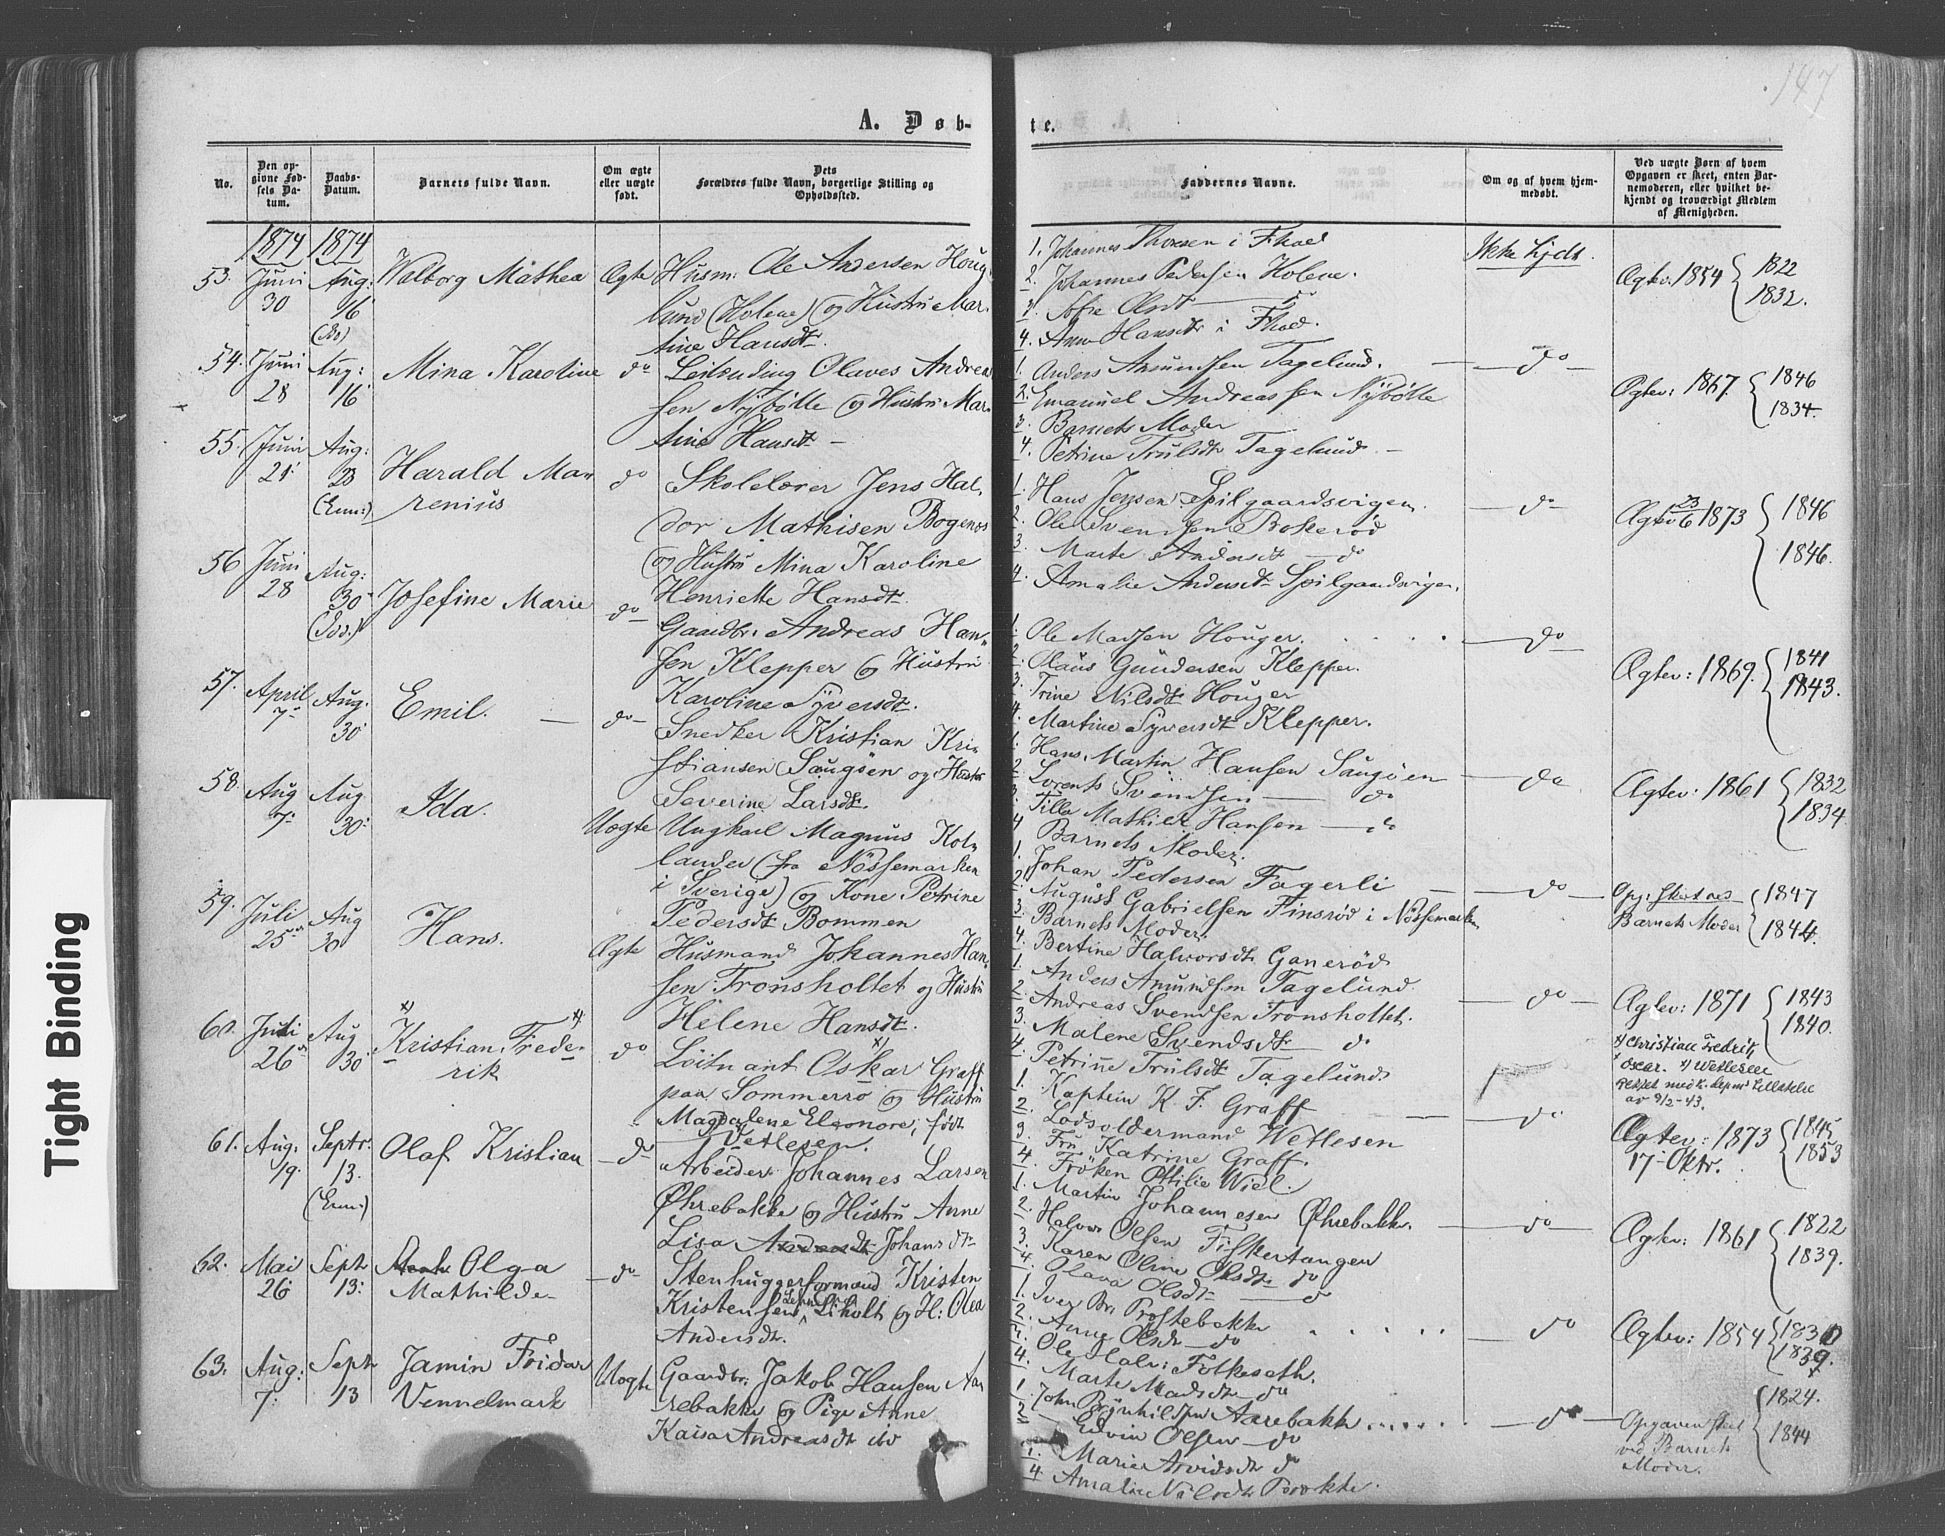 147
A. Døb-
te.
No.
Den op-
givne Fød-
sels Da-
tum.
Daabs-
Datum.
Barnets fulde Navn.
Om ægte
eller uægte
født.
Dets
Forældres fulde Navn, borgerlige Stilling og
Opholdssted.
Faddernes Navne.
Om og af hvem hjem-
medøbt.
Ved uægte Børn af hvem
Opgaven er skeet, enten Bar-
nemoderen, eller hvilket be-
kjendt og troværdigt Medlem
af Menigheden.
1874 1874
53. Juni 30 Aug: 16 Walborg Mathea Ægte Husm: Ole Andersen Houg-
lund (Holene) og Hustru Mar-
tine Hansdtr.
1. Johannes Thoresen i
2. Johannes Pedersen Holene.
3. Sofie Olsdt
4. Anne Hansdt i
Ikke hjdt.
Ægtev: 1854 { 1822
1832.
54. Juni 28 Aug: 16 Mina Karoline do Leilending Olaves Andrea
sen Nybøtte og Hustru Mar-
tine Hansdt -
1. Anders Amundsen Tagelund.
2. Emanuel Andreassen Nybøtte
3. Barnets Moder
4. Petrine Trulsdt Tagelund -
do
Ægtev: 1867. { 1846
1834.
55. Juni 21 Aug: 23 Harald Ma-
renius
do Skolelærer Jens Hal-
dor Mathisen Bogenes
og Hustru Mina Karoline
Henriette Hansdt.
1. Hans Jensen Spilgaardsvigen
2. Ole Svendsen Bokerød
3. Marte Andersdt do
4. Amalie Andersdt Spilgaardsvigen.
do
Ægtev 23/6 1873 { 1846
1846.
56 Juni 28 Aug: 30 Josefine Marie do Gaardbr: Andreas Han-
sen Klepper og Hustru
Karoline Syversdt.
1. Ole Madsen Houger.
2. Olaus Gundersen Klepper.
3. Trine Nilsdt Houger
4. Martine Syversdt Klepper.
do
Ægtev: 1869. { 1841
1843.
57. April 7 Aug. 30 Emil. do Snedker Kristian Kri-
stiansen Saugøen og Hustru
Severine Larsdt.
1. Hans Martin Hansen Saugøen
2. Lorents Svendsen do
3. Tilla Mathier Hansen do
4 Barnets Moder.
do
Ægtev: 1861 { 1832
1834.
58. Aug 7 Aug 30 Ida. Uægte Ungkarl Magnus Kol-
lander (fra Nössemarken
i Sverige) og Kone Petrine
Pedersdt Bommen
1. Johan Pedersen Fagerli
2. August Gabrielsen Finsrød i Nössemarken
3. Barnets Moder.
4. Bertine Halvorsdt. Ganerød
do
Opg: skert ved
Barnets Moder { 1847
1844.
59. Juli 25 Aug 30 Hans. Ægte Husmand Johannes Han-
sen Tronsholtet og Hustru
Helene Hansdt.
1. Anders Amundsen Tagelund.
2. Andreas Svendsen Tronsholtet.
3. Malene Svendsdt do
4. Petrine Trulsdt Tagelund.
do
Ægtev: 1871 { 1843
1840.
60. Juli 26 Aug 30 Kristian Frede-
rik
do Löitnant Oskar Graff
paa Sommerro og Hustru
Magdalene Eleonore, født
Vetlesen.
1. Kaptein K. F. Graff
2. Lodsoldermand Wetlesen
3. Fru Katrine Graff.
4. Frøken Ottilie Wiel.
do
x) Christian Fredrik,
x Oscar. x) Wetlesen
rettet med k. depmt tillatelse
av 9/2-43.
Ægtev: 1873
17 Oktr. { 1845
1853
61. Aug. 19 Septr: 13. Olaf Kristian do Arbeider Johannes Larsen
Øhrebakke og Hustru Anne
Lisa Andersdt Johansdtr
1. Martin Johannesen Øhrebakke
2. Halvor Olsen Fiskertangen
3. Karen Oline Olsdt do
4. Olava Olsdt do
do
Ægtev: 1861 { 1822
1839.
62. Mai 26 Septr 13 Olga
Mathilde
do Stenhuggerformand Kristen
Kristensen Liholt og H: Olea
Andersdt.
1. Iver Br: Prostebakke
2. Anne Olsdt do
3. Ole Halv: Folkeseth.
4. Marte Madsdt do
do
Ægtev: 1854 { 1830
1839.
63. Aug: 7. Septr 13 Jamin Fridar
Vennelmark
Uægte Gaardbr: Jakob Hansen Aa-
rebakke og Pige Anne
Kaisa Andreasdt ibd
1. John Brynhildsen Aarebakke
2. Edvin Olsen do
3. Marie Arvidsdt do
4. Amalie Nilsdt
do
Opgaven skeet
ved Barnets
Moder. { 1824.
1844
Tight Binding